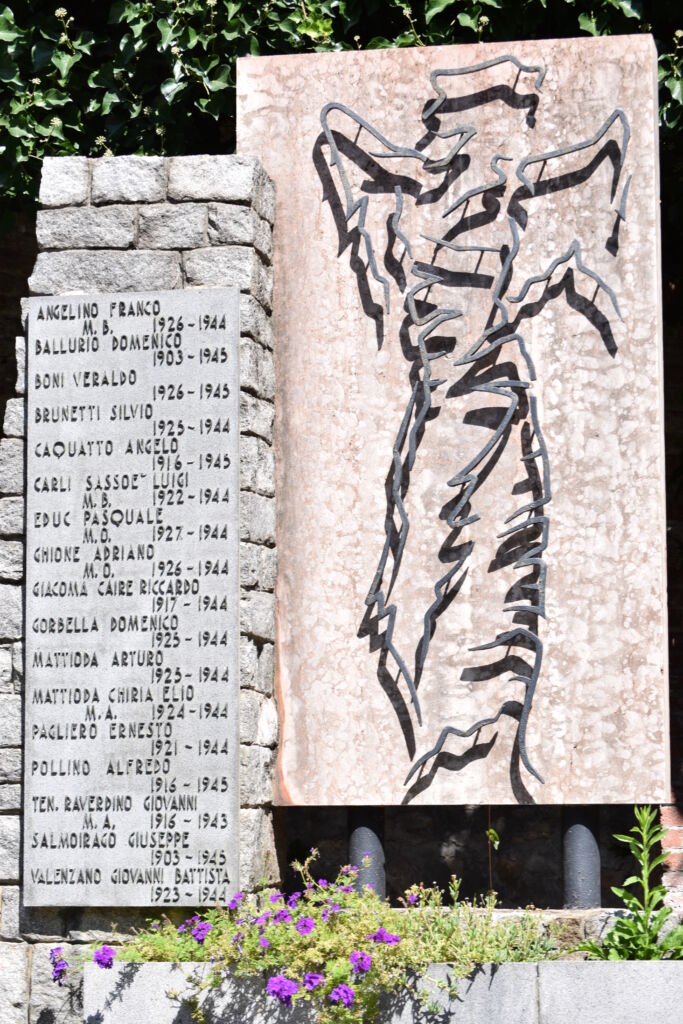 ANGELINO FRANCO
M. B. 1926-1944
BALLURIO DOMENICO
1903-1945
BONI VERALDO
1926-1945
BRUNETTI SILVIO
1925-1944
CAQUATTO ANGELO
1916-1945
CARLI SASSOE' LUIGI
M. B. 1922-1944
EDUC PASQUALE
M. O. 1927-1944
GHIONE ADRIANO
M. O. 1926-1944
GIACOMA CAIRE RICCARDO
1917-1944
GORBELLA DOMENICO
1925-1944
MATTIODA ARTURO
1925-1944
MATTIODA CHIRIA ELIO
M. A. 1924-1944
PAGLIERO ERNESTO
1921-1944
POLLINO ALFREDO
1916-1945
TEN. RAVERDINO GIOVANNI
M. A. 1916-1943
SALMOIRAGO GIUSEPPE
1903-1945
VALENZANO GIOVANNI BATTISTA
1923-1944